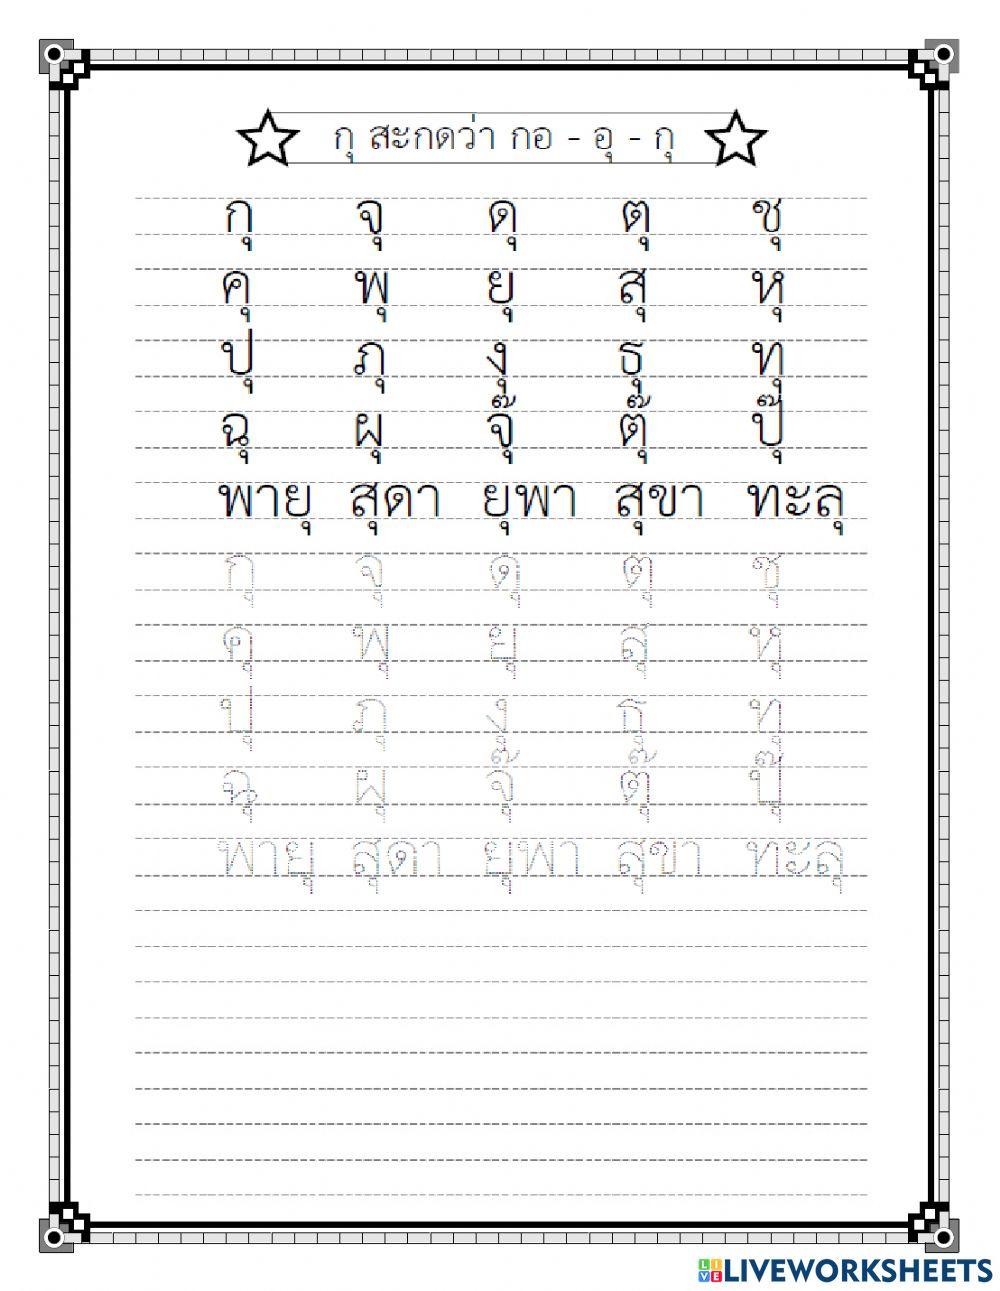 กุ สะกดว่า กอ - อุ - กุ
กุ จุ ดุ ตุ ชุ
คุ พุ ยุ สุ หุ
ปุ ภุ งุ ธุ ทุ
ฉุ ผุ จุ๊ ตุ๊ ปุ๊
พายุ สุดา ยุพา สุขา ทะลุ
กุ จุ ดุ ตุ ชุ
คุ พุ ยุ สุ หุ
ปุ ภุ งุ ธุ ทุ
ฉุ ผุ จุ๊ ตุ๊ ปุ๊
พายุ สุดา ยุพา สุขา ทะลุ
LIVE LIVEWORKSHEETS